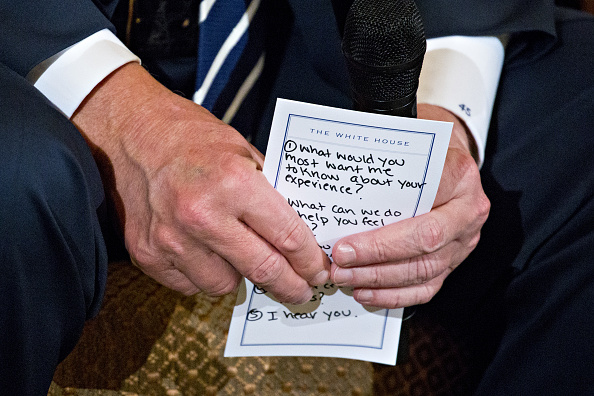 THE WHITE HOUSE
① What would you
most want me
to know about your
experience?
What can we do
help you feel
?
s?
⑤ I hear you.
45